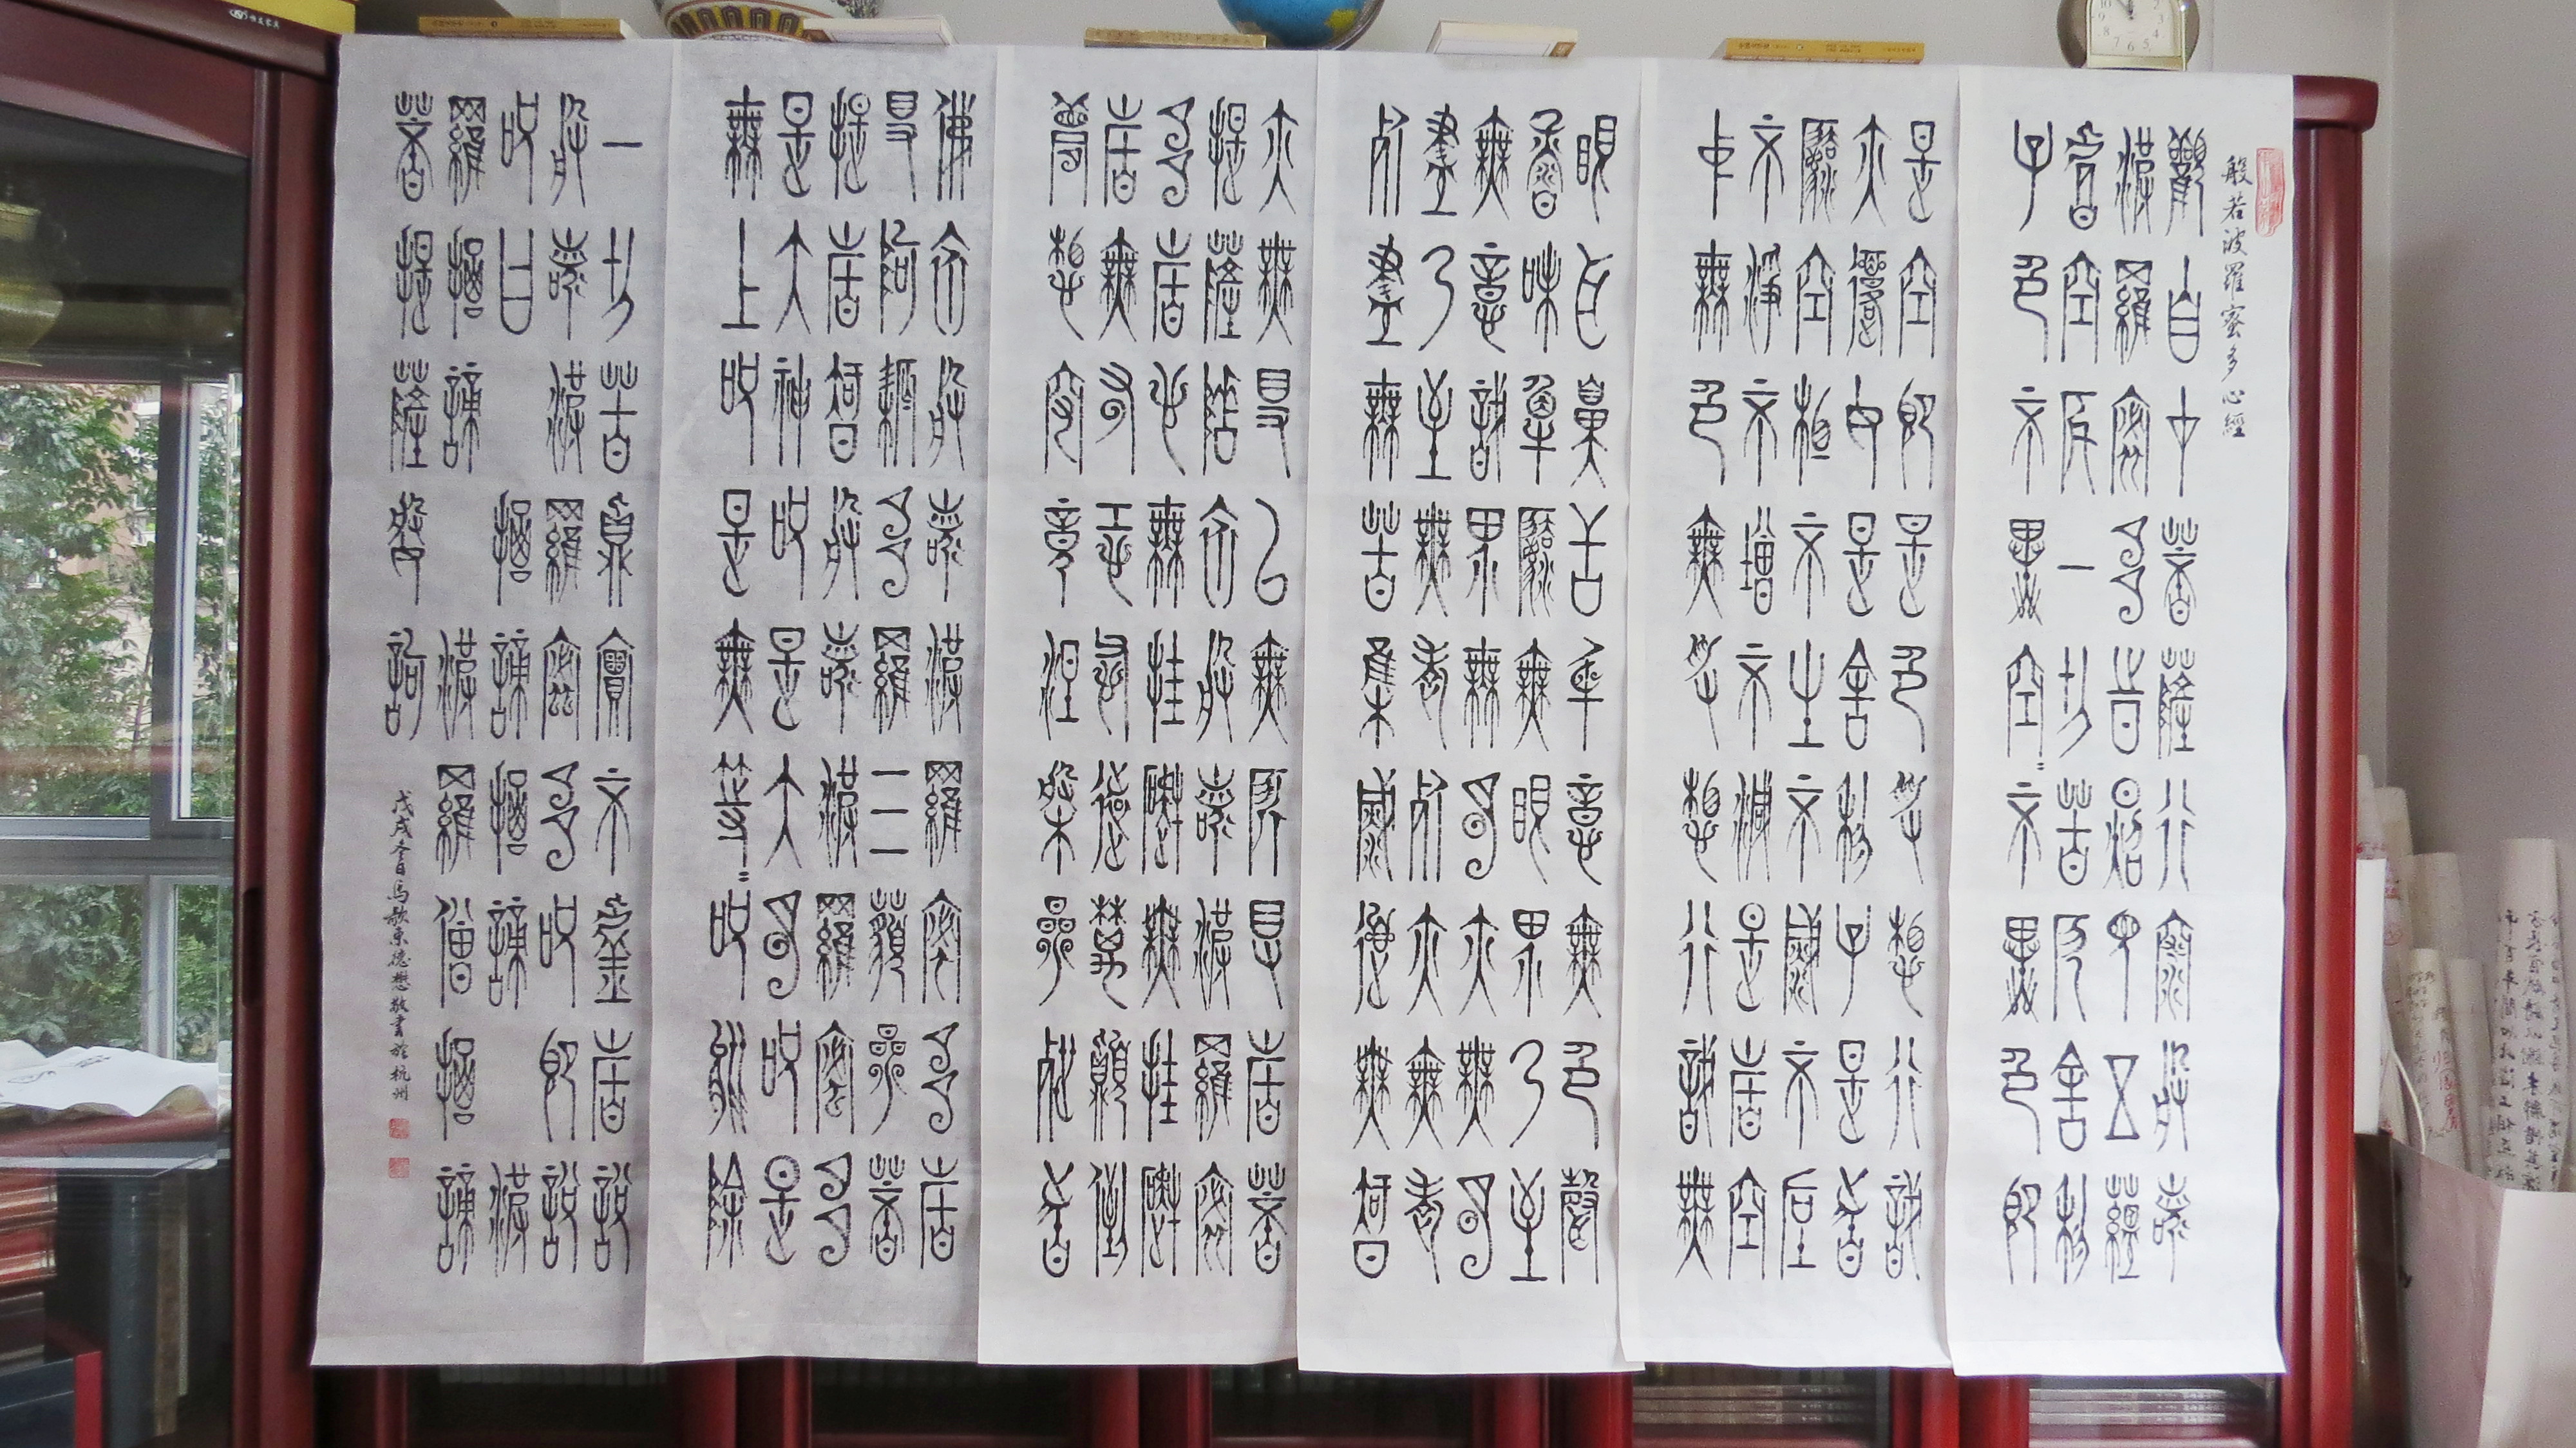 般若波羅蜜多心經
觀自在菩薩行深般若
波羅蜜多時照見五蘊
皆空度一切苦厄舍利
子色不異空=不異色即
是空即是色受想行識
亦復如是舍利子是諸
法空相不生不滅不垢
不淨不增不減是故空
中無色無受想行識無
眼耳鼻舌身意無色聲
香味觸法無眼界乃至
無意識界無明亦無明
盡乃至無老死亦無老
死盡無苦集滅道無智
亦無得以無所得故菩
提薩埵依般若波羅蜜
多故心無罣礙無罣礙
故無有恐怖遠離顛倒
夢想究竟涅槃三世諸
佛依般若波羅蜜多故
得阿耨多羅三藐三菩
提故知般若波羅蜜多
是大神咒是大明咒是
無上咒是無等=咒能除
一切苦真實不虛故說
般若波羅蜜多咒即說
咒曰 揭諦揭諦 波
羅揭諦 波羅僧揭諦
菩提薩婆訶
戊戌冬日馬歌東德懋敬書於杭州